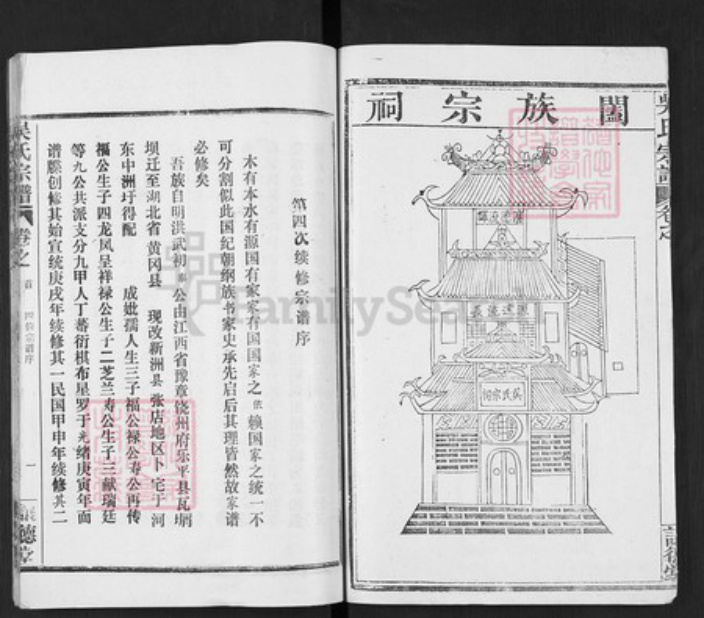 閤族宗祠
吳氏宗祠
吳氏宗譜
第四次续修宗谱序
木有本水有源国有家家有国国家之依赖国家之统一不
可分割似此国纪朝纲族书家史承先启后其理皆然故家谱
必修矣
吾族自明洪武初 公由江西省豫章饶州府乐平县瓦塥
坝迁至湖北省黄冈县 现改新洲县张店地区卜宅于河
东中洲圩得配 成妣孺人生三子福公禄公寿公再传
福公生子四龙凤呈祥禄公生子二芝兰寿公生子三献瑞廷
等九公共派支分九甲人丁蕃衍棋布星罗于光绪庚寅年而
谱牒创修其始宣统庚戌年续修其一民国甲申年续修其二
吳氏宗譜 卷之首 四修宗谱序 一
FamilySearch